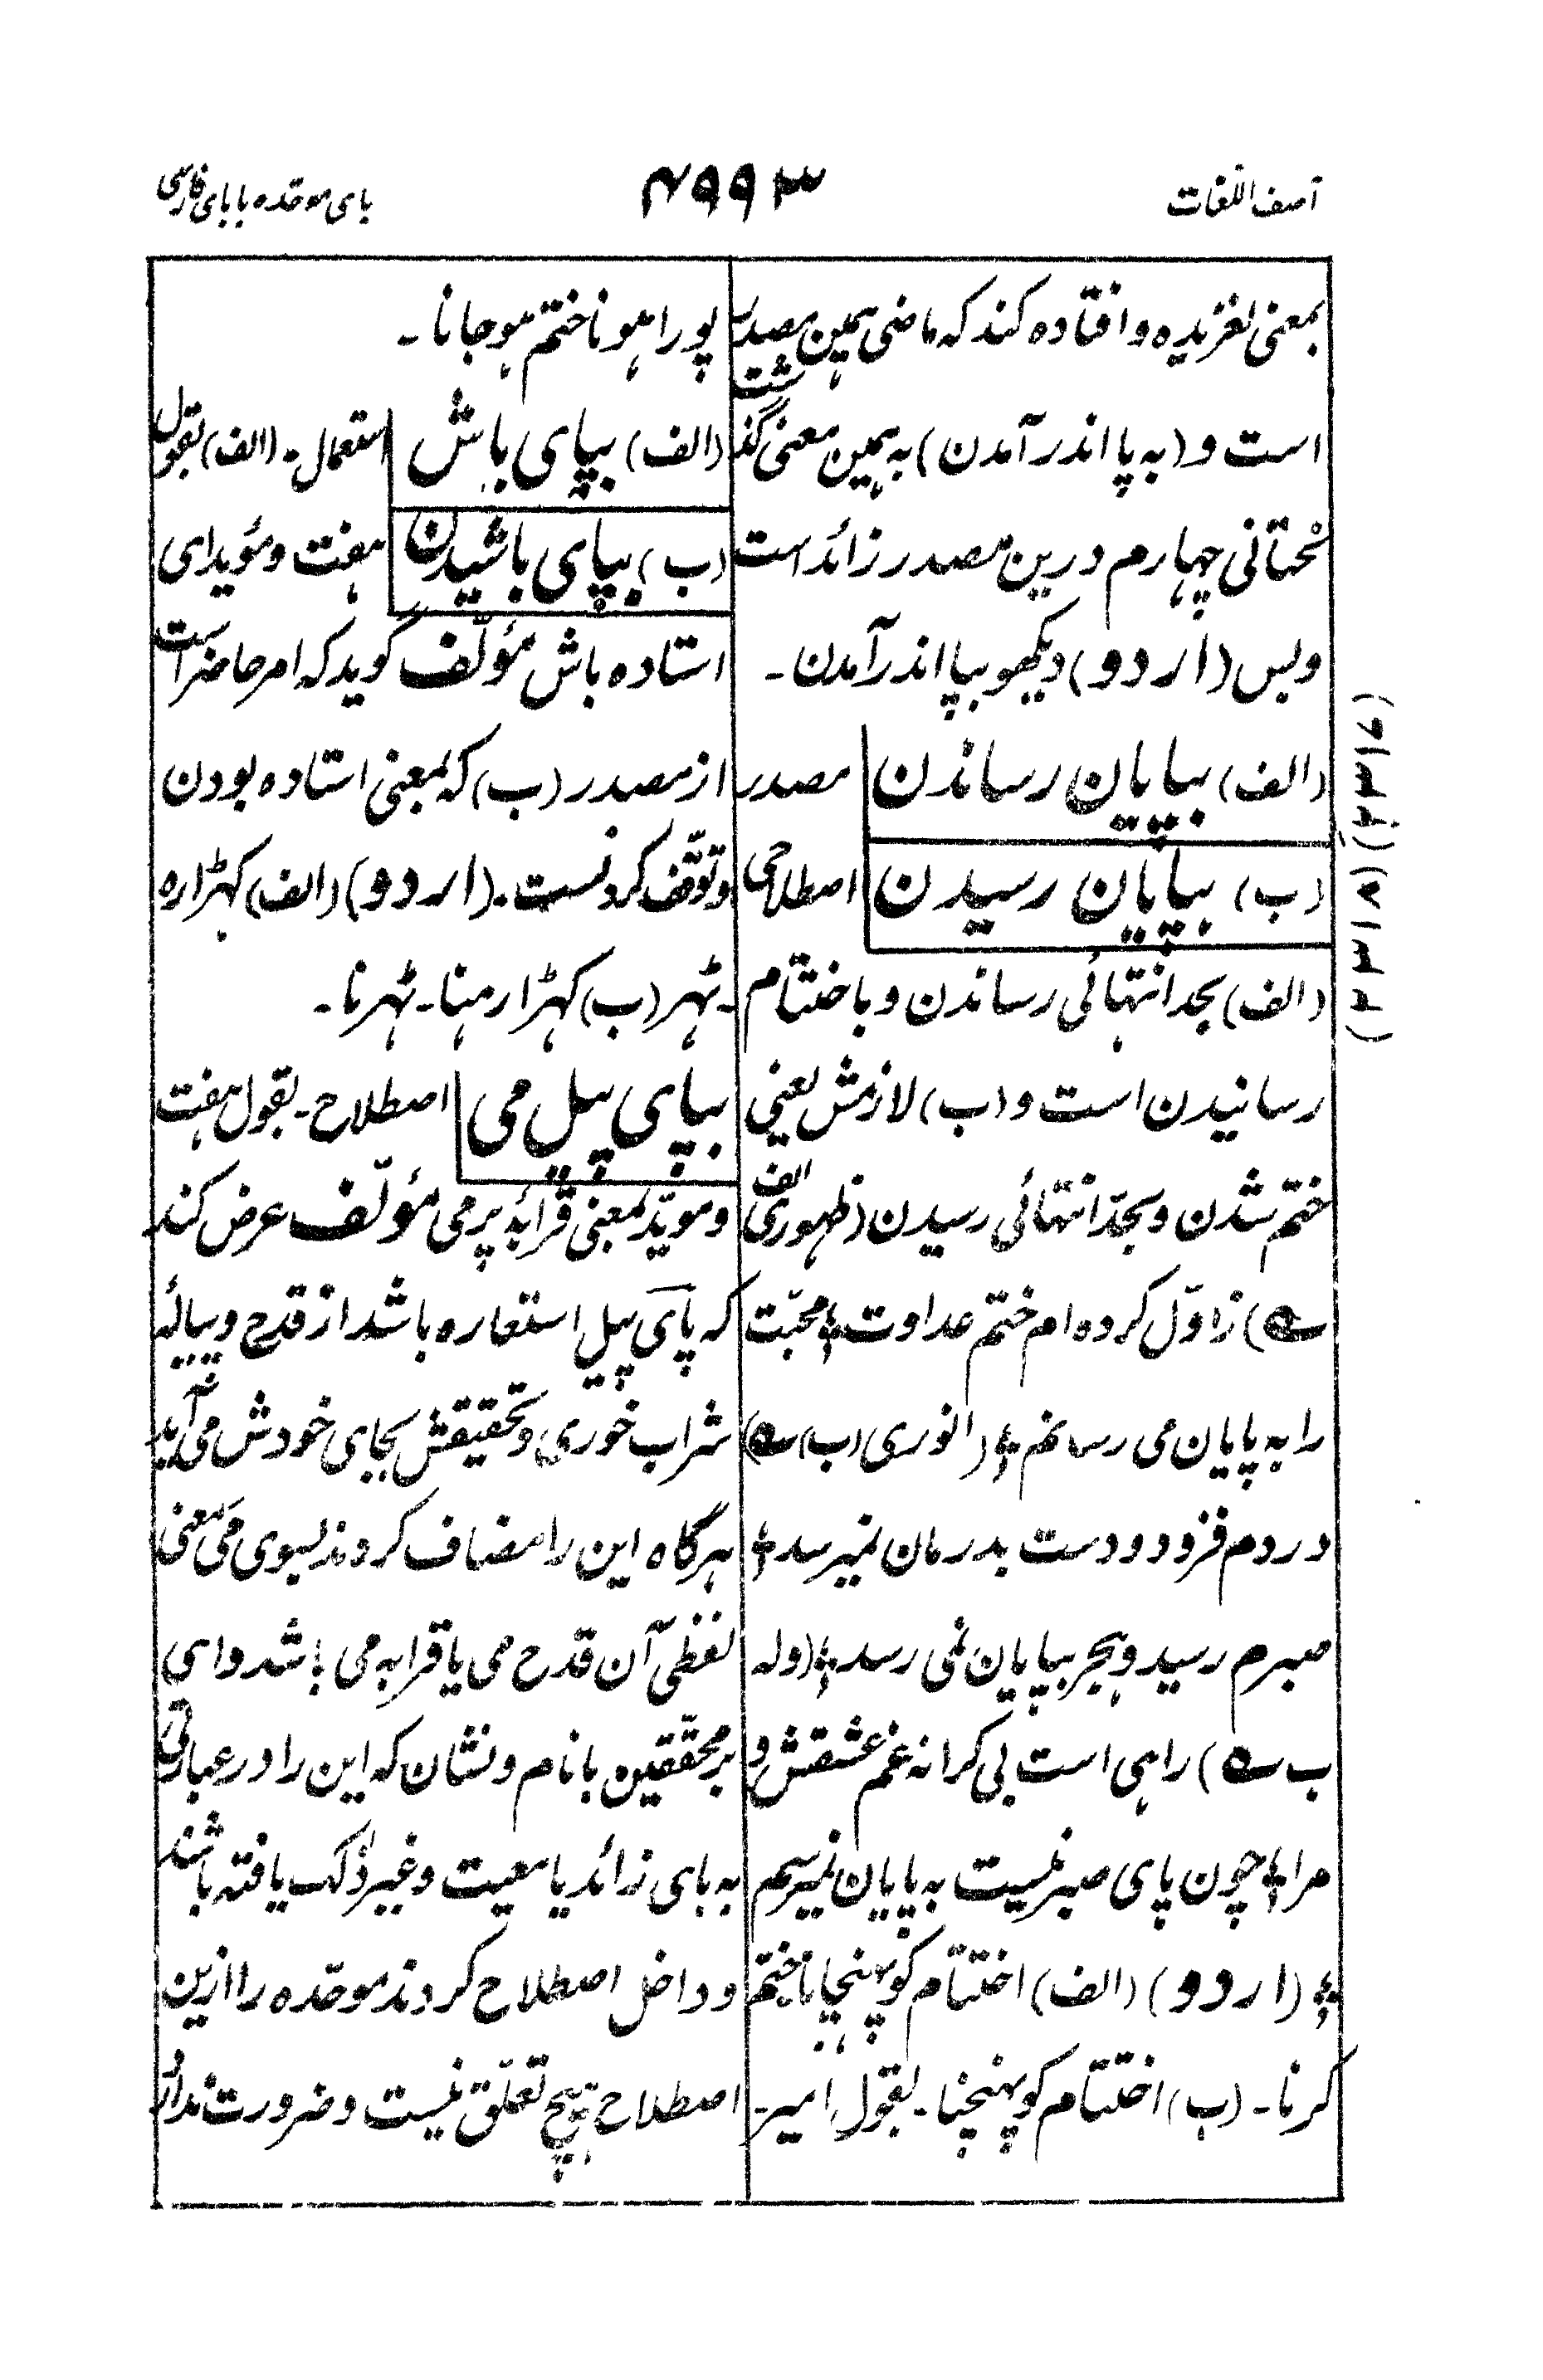 آصف اللغات
۴۹۹۳
بای موحّده با بای فارسی
بمعنی لغزیده و افتاده کند که ماضی همین مصدر
است و (به پا اندر آمدن) به همین معنی گذشت
تحتانی چهارم درین مصدر زائد است
و بس (اردو) دیکھو بپا اندر آمدن ۔
(الف) بپایان رساندن مصدر
(ب) بپایان رسیدن اصطلاحی
(الف) بحد انتهائی رساندن و باختتام
رسانیدن است و (ب) لازمش یعنی
ختم شدن و بحدّ انتهائی رسیدن (ظهوری الف
ے) ز اوّل کرده ام ختم عداوت ؛ محبّت
را به پایان می رسانم ؛ (انوری (ب) ے)
دردم فزود و دست بدرمان نمیرسد ؛
صبرم رسید و هجر بپایان نمی رسد ؛ (وله
ب ے) راهی است بی کرانه غم عشقش و
مرا ؛ چون پای صبر نیست به پایان نمیرسم
؛ (اردو) (الف) اختتام کو پہنچانا ختم
کرنا ۔ (ب) اختتام کو پہنچنا ۔ بقول امیر ۔
پورا ہونا ختم ہوجانا ۔
(الف) بپای باش استعمال ۔ (الف) بقول
(ب) بپای باشیدن هفت و مؤید ای
استاده باش مؤلّف گوید که امر حاضر است
از مصدر (ب) که بمعنی استاده بودن
و توقّف کردنست ۔ (اردو) (الف) کہڑا رہ
۔ ٹہر (ب) کہڑا رہنا ۔ ٹہرنا ۔
بپای پیل می اصطلاح ۔ بقول هفت
و مویّد بمعنی قرابه پر می مؤلّف عرض کند
که پای پیل استعاره باشد از قدح و پیالهٔ
شراب خوری و تحقیقش بجای خودش می آید
هرگاه این را مضاف کردند بسوی می معنی
لفظی آن قدح می یا قرابه می باشد وای
بر محقّقین با نام و نشان که این را در عبارتی
به بای زائد یا معیت و غیر ذلک یافته باشند
و داخل اصطلاح کردند موحّده را ازین
اصطلاح هیچ تعلّق نیست و ضرورت ندارد